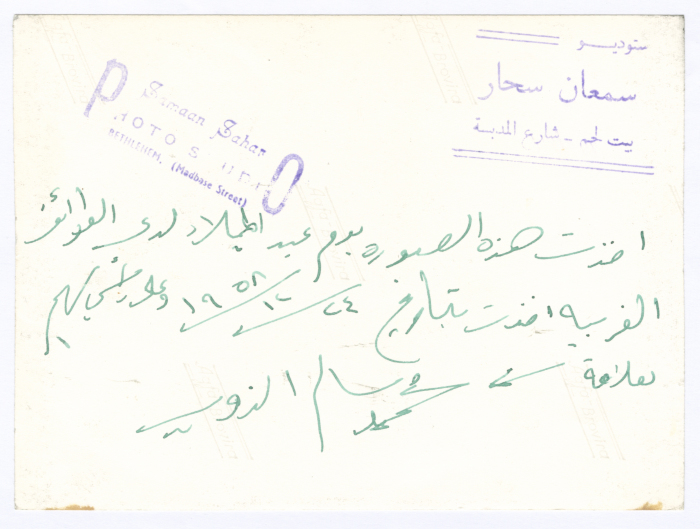 ستوديو
سمعان سحار
بيت لحم - شارع المدبسة
Samaan Sahar
PHOTO STUDIO
BETHLEHEM, (Madbase Street)
اخذت هذه الصوره يوم عيد الميلاد لدى الطوائف
الغربيه اخذت بتاريخ ٢٤/١٢/١٩٥٨
بعلامة محمد سالم الذويب